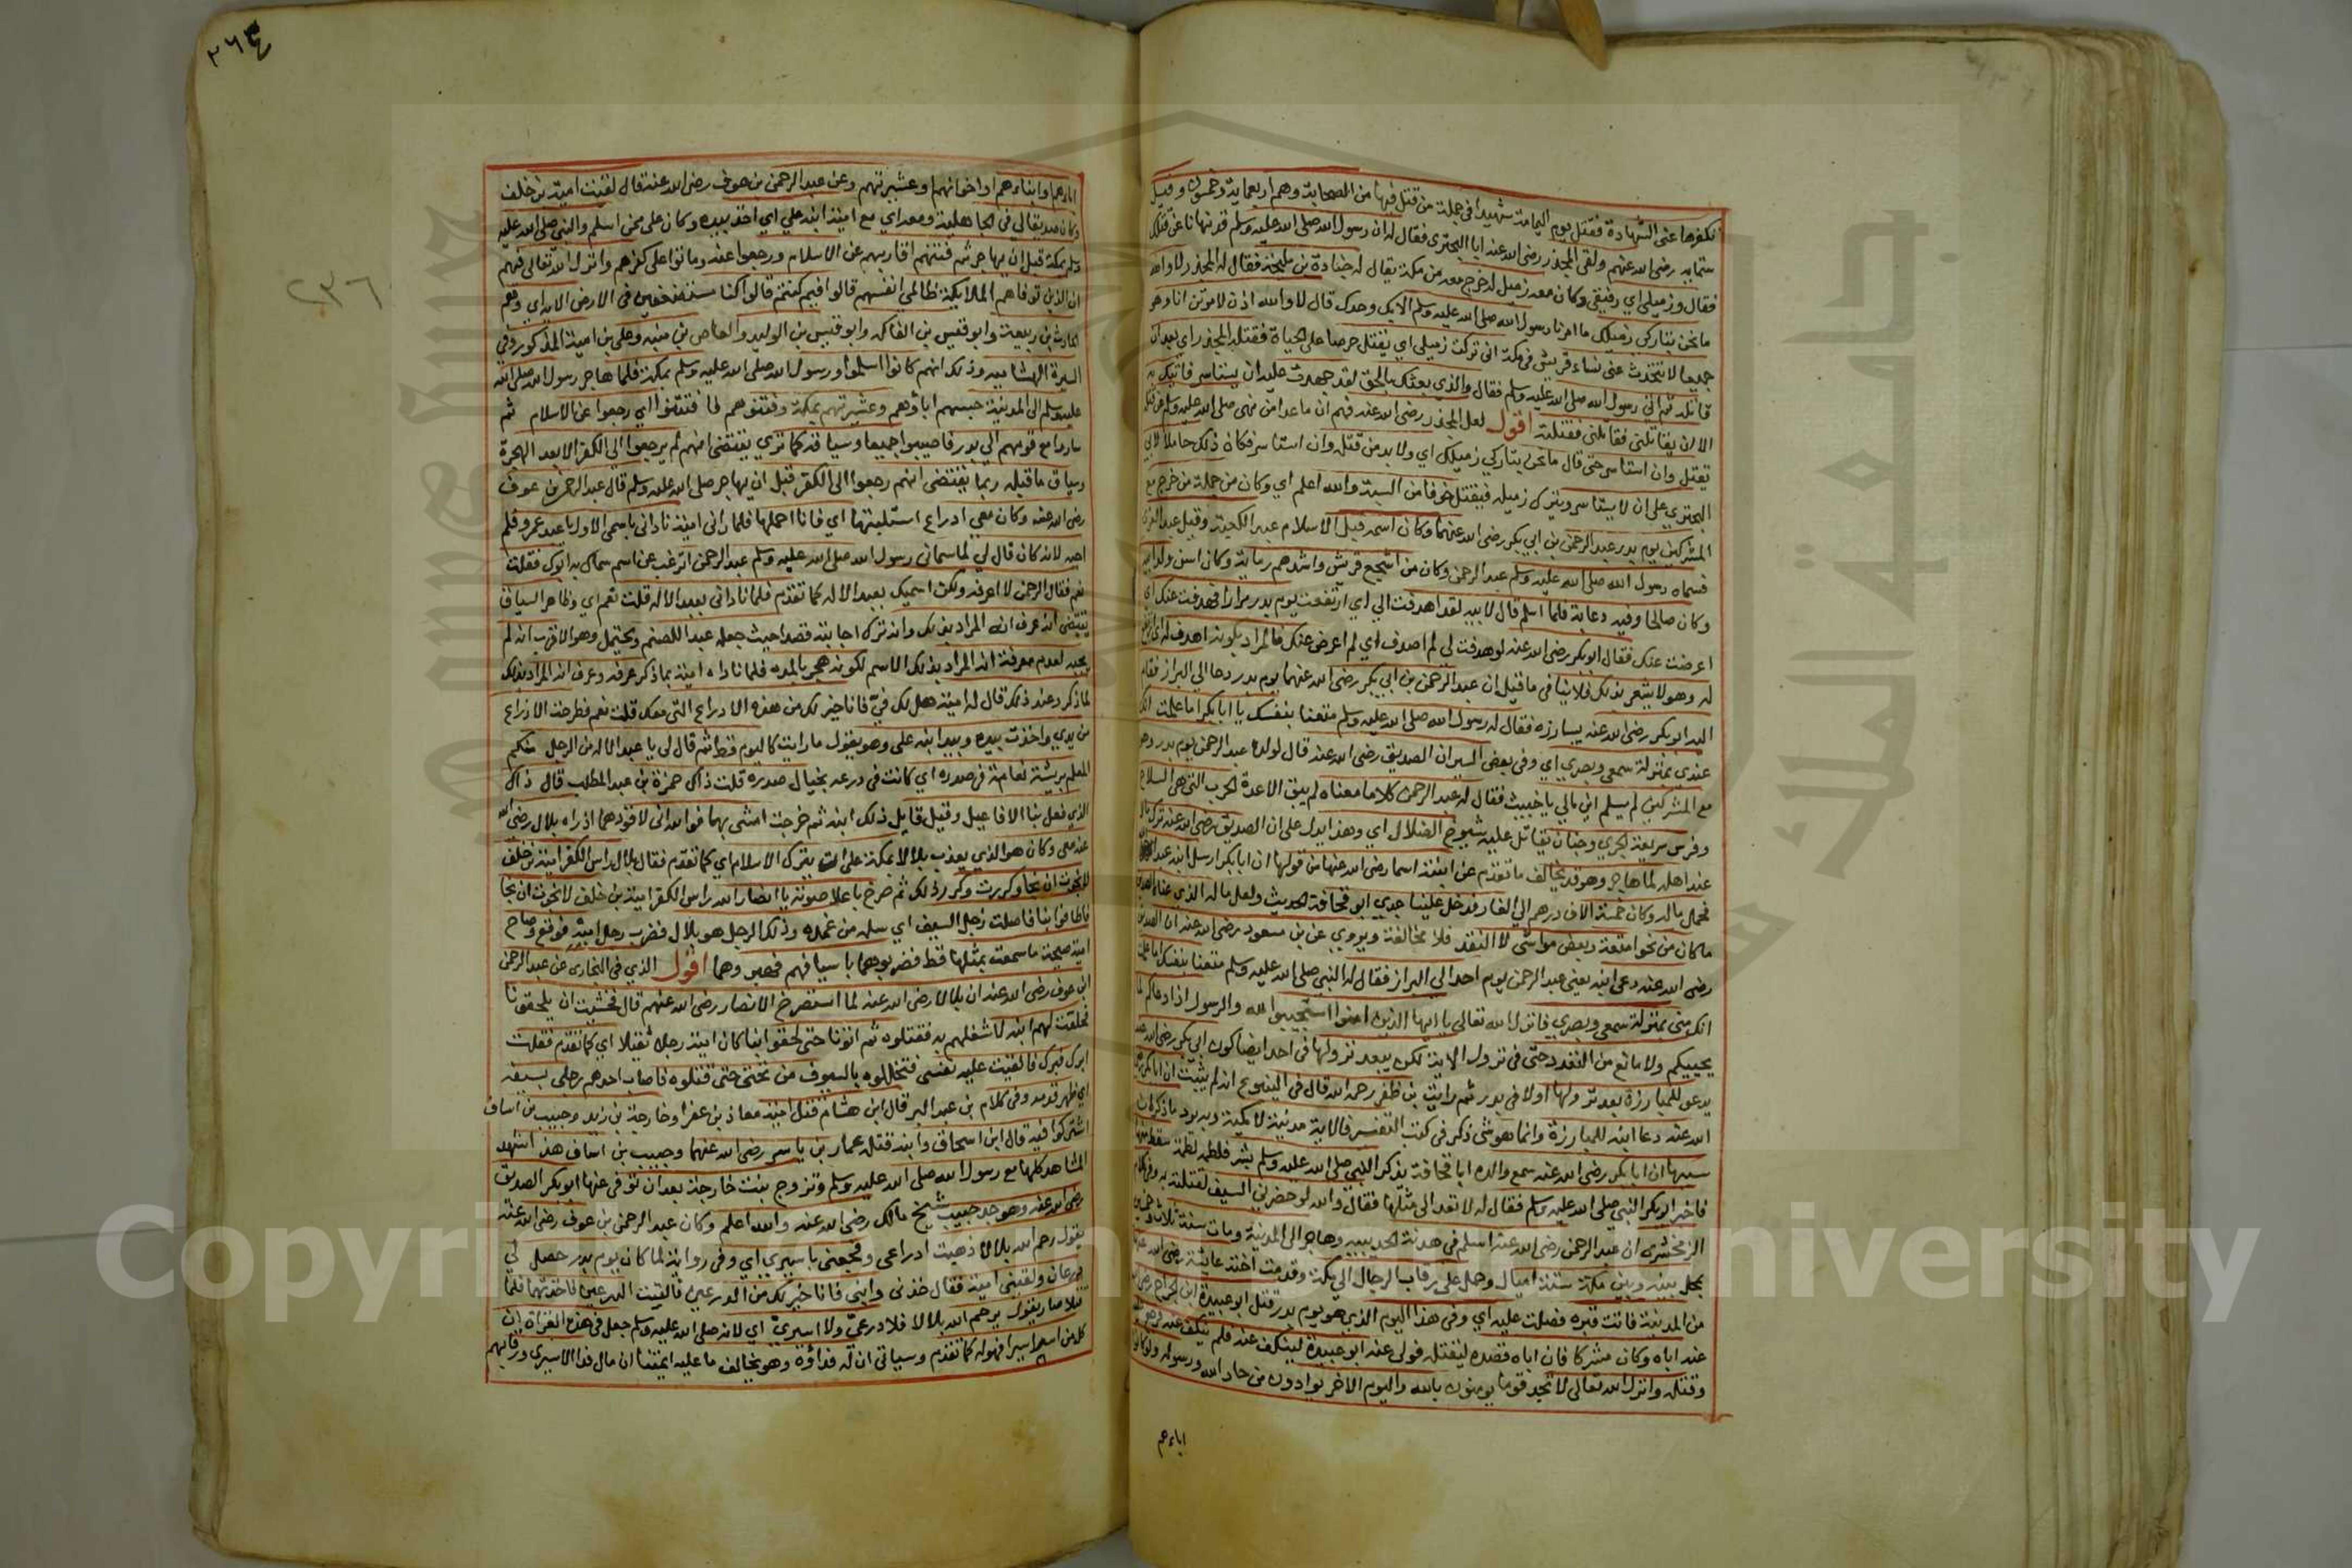 تكفرها عني الشهادة فقتل يوم اليمامة شهيدا في جملة من قتل فيها من الصحابة وهم اربعماية وخمسون وقيل
ستماية رضي الله عنهم ولقي المجذر رضي الله عنه ابا البحتري فقال له ان رسول الله صلى الله عليه وسلم قد نهانا عن قتلك
فقال وزميلي اي رفيقي وكان معه زميل له خرج معه من مكة يقال له جنادة بن مليحة فقال له المجذر لا والله
ما نحن بتاركي زميلك ما امرنا رسول الله صلى الله عليه وسلم الا بك وحدك قال لا والله اذن لاموتن انا وهو
جميعا لا تتحدث عني نساء قريش في مكة اني تركت زميلي اي يقتل حرصا على الحياة فقتله المجذر اي بعد ان
قاتله ثم اتى رسول الله صلى الله عليه وسلم فقال والذي بعثك بالحق لقد جهدت عليه ان يستاسر فاتيك به
الا ان يقاتلني فقاتلني فقتلته اقول لعل المجذر رضي الله عنه فهم ان ما عدا من نهى صلى الله عليه وسلم عن قتله
يقتل وان استاسر حتى قال ما نحن بتاركي زميلك اي ولا بد من قتله وان استاسر فكان ذلك حاملا لابي
البحتري على ان لا يستاسر ويترك زميله فيقتل خوفا من السبة والله اعلم اي وكان من جملة من خرج مع
المشركين يوم بدر عبد الرحمن بن ابي بكر رضي الله عنهما وكان اسمه قبل الاسلام عبد الكعبة وقيل عبد العزى
فسماه رسول الله صلى الله عليه وسلم عبد الرحمن وكان من اشجع قريش واشدهم رماية وكان اسن ولد ابيه
وكان صالحا وفيه دعابة فلما اسلم قال لابيه لقد اهدفت الي اي ارتفعت يوم بدر مرارا فصدفت عنك اي
اعرضت عنك فقال ابو بكر رضي الله عنه لو هدفت لي لم اصدف اي لم اعرض عنك فالمراد بكونه اهدف له
له وهو لا يشعر بذلك فلا ينافي ما قيل ان عبد الرحمن بن ابي بكر رضي الله عنهما يوم بدر دعا الى البراز فقام
اليه ابو بكر رضي الله عنه يبارزه فقال له رسول الله صلى الله عليه وسلم متعنا بنفسك يا ابا بكر اما علمت انك
عندي بمنزلة سمعي وبصري اي وفي بعض السير ان الصديق رضي الله عنه قال لولده عبد الرحمن يوم بدر وهو
مع المشركين لم يسلم اين مالي يا خبيث فقال له عبد الرحمن كلاما معناه لم يبق الا عدة الحرب التي هي السلاح
وفرس سريعة الجري وجنان يقاتل عليه شيوخ الضلال اي وهذا يدل على ان الصديق رضي الله عنه ترك مال
عند اهله لما هاجر وهو قد يخالف ما تقدم عن ابنته اسما رضي الله عنها من قولها ان ابا بكر ارسل ابنه عبد الله
فحمل ماله وكان خمسة الاف درهم الى الغار فدخل علينا جدي ابو قحافة الحديث ولعل ماله الذي عناه الصديق
ما كان من نحو امتعة وبعض مواشي لا النقد فلا مخالفة ويروى عن بن مسعود رضي الله عنه ان الصديق
رضي الله عنه دعى ابنه يعني عبد الرحمن يوم احد الى البراز فقال له النبي صلى الله عليه وسلم متعنا بنفسك اما علمت
انك مني بمنزلة سمعي وبصري فانزل الله تعالى يا ايها الذين امنوا استجيبوا لله والرسول اذا دعاكم لما
يحييكم ولا مانع من التعدد حتى في نزول الاية لكن يبعد نزولها في احد ايضا كون ابي بكر رضي الله عنه
يدعو للمبارزة بعد نزولها اولا في بدر ثم رايت بن ظفر رحمه الله قال في الينبوع انه لم يثبت ان ابا بكر رضي
الله عنه دعا ابنه للمبارزة وانما هو شي ذكر في كتب التفسير فالاية مدنية لا مكية ويريد ما ذكر ان
سببها ان ابا بكر رضي الله عنه سمع والده ابا قحافة يذكر النبي صلى الله عليه وسلم بشر فلطمه لطمة سقط منها
فاخبر ابو بكر النبي صلى الله عليه وسلم فقال له لا تعد الى مثلها فقال والله لو حضرني السيف لقتلته به وفي كلام
الزمخشري ان عبد الرحمن رضي الله عنه اسلم في هدنة الحديبية وهاجر الى المدينة ومات سنة ثلاث وخمسين
بمحل بينه وبين مكة ستة اميال وحمل على رقاب الرجال الى مكة وقدمت اخته عائشة رضي الله عنها
من المدينة فاتت قبره فصلت عليه اي وفي هذا اليوم الذي هو يوم بدر قتل ابو عبيدة ابن الجراح رضي الله
عنه اباه وكان مشركا فان اباه قصده ليقتله فولى عنه ابو عبيدة لينكف عنه فلم ينكف عنه فرجع عليه
وقتله وانزل الله تعالى لا تجد قوما يومنون بالله واليوم الاخر يوادون من حاد الله ورسوله ولو كانوا
اباءهم
٢٦٤
٢٣٦
اباءهم او ابناءهم او اخوانهم او عشيرتهم وعن عبد الرحمن بن عوف رضي الله عنه قال لقيت امية بن خلف
وكان صديقا لي في الجاهلية ومعه اي مع امية ابنه علي اي اخذ بيده وكان علي ممن اسلم والنبي صلى الله عليه
وسلم بمكة قبل ان يهاجر ثم فتنهم اقاربهم عن الاسلام ورجعوا عنه وماتوا على كفرهم وانزل الله تعالى فيهم
ان الذين توفاهم الملايكة ظالمي انفسهم قالوا فيم كنتم قالوا كنا مستضعفين في الارض الاية اي وهم
الحارث بن ربيعة وابو قيس بن الفاكه وابو قيس بن الوليد والعاص بن منبه وعلي بن امية المذكور وفي
السيرة الهشامية وذلك انهم كانوا اسلموا ورسول الله صلى الله عليه وسلم بمكة فلما هاجر رسول الله صلى الله
عليه وسلم الى المدينة حبسهم اباؤهم وعشيرتهم بمكة وفتنوهم فافتتنوا اي رجعوا عن الاسلام ثم
ساروا مع قومهم الى بدر فاصيبوا جميعا وسياقه كما ترى يقتضي انهم لم يرجعوا الى الكفر الا بعد الهجرة
وسياق ما قبله ربما يقتضي انهم رجعوا الى الكفر قبل ان يهاجر صلى الله عليه وسلم قال عبد الرحمن بن عوف
رضي الله عنه وكان معي ادراع استلبتها اي فانا احملها فلما راني امية ناداني باسمي الاول يا عبد عمرو فلم
اجبه لانه كان قال لي لما سماني رسول الله صلى الله عليه وسلم عبد الرحمن اترغب عن اسم سماك به ابوك فقلت
نعم فقال الرحمن لا اعرفه ولكن اسميك بعبد الاله كما تقدم فلما ناداني بعبد الاله قلت نعم اي وظاهر السياق
يقتضي انه عرف انه المراد بذلك وانه ترك اجابته قصدا حيث جعله عبدا للصنم ويحتمل وهو الاقرب انه لم
يجبه لعدم معرفة انه المراد بذلك الاسم لكونه هجر بالمرة فلما ناداه امية بما ذكر عرفه وعرف انه المراد بذلك
لما ذكر وعند ذلك قال له امية هل لك في فانا خير لك من هذه الادراع التي معك قلت نعم فطرحت الادراع
من يدي واخذت بيده وبيد ابنه علي وهو يقول ما رايت كاليوم قط ثم قال لي يا عبد الاله من الرجل منكم
المعلم بريشة نعامة في صدره اي كانت في درعه بحيال صدره قلت ذاك حمزة بن عبد المطلب قال ذاك
الذي فعل بنا الافاعيل وقيل قايل ذلك ابنه ثم خرجت امشي بهما فوالله اني لاقودهما اذ راه بلال رضي الله
عنه معي وكان هو الذي يعذب بلالا بمكة على ان يترك الاسلام اي كما تقدم فقال بلال راس الكفر امية بن خلف
لا نجوت ان نجا وكررت وكرر ذلك ثم صرخ باعلا صوته يا انصار الله راس الكفر امية بن خلف لا نجوت ان نجا
فاحاطوا بنا فاصلت رجل السيف اي سله من غمده وذلك الرجل هو بلال فضرب رجل ابنه فوقع وصاح
امية صيحة ما سمعت بمثلها قط فضربوهما باسيافهم فهبروهما اقول الذي في البخاري عن عبد الرحمن
ابن عوف رضي الله عنه ان بلالا رضي الله عنه لما استصرخ الانصار رضي الله عنهم قال فخشيت ان يلحقونا
فخلفت لهم ابنه لاشغلهم به فقتلوه ثم اتونا حتى لحقوا بنا كان امية رجلا ثقيلا اي كما تقدم فقلت
ابرك فبرك فالقيت عليه نفسي فتخللوه بالسيوف من تحتي حتى قتلوه فاصاب احدهم رجلي بسيفه
اي ظهر قدمه وفي كلام بن عبد البر قال ابن هشام قتل امية معاذ بن عفرا وخارجة بن زيد وحبيب بن اساف
اشتركوا فيه قال ابن اسحاق وابنه قتله عمار بن ياسر رضي الله عنهما وحبيب بن اساف هذا شهد
المشاهد كلها مع رسول الله صلى الله عليه وسلم وتزوج بنت خارجة بعد ان توفي عنها ابو بكر الصديق
رضي الله عنه وهو جد حبيب شيخ مالك رضي الله عنه والله اعلم وكان عبد الرحمن بن عوف رضي الله عنه
يقول رحم الله بلالا ذهبت ادراعي وفجعني باسيري اي وفي رواية لما كان يوم بدر حصل لي
درعان ولقيني امية فقال خذني وابني فانا خير لك من الدرعين فالقيت الدرعين فاخذتهما فلما
قتلا صار يقول يرحم الله بلالا فلا درعي ولا اسيري اي لانه صلى الله عليه وسلم جعل في هذه الغزاة ان
كل من اسر اسيرا فهو له كما تقدم وسياتي ان له فداؤه وهو يخالف ما عليه ايمتنا ان مال فدا الاسرى ورقابهم
Copyright © King Saud University
جامعة الملك سعود